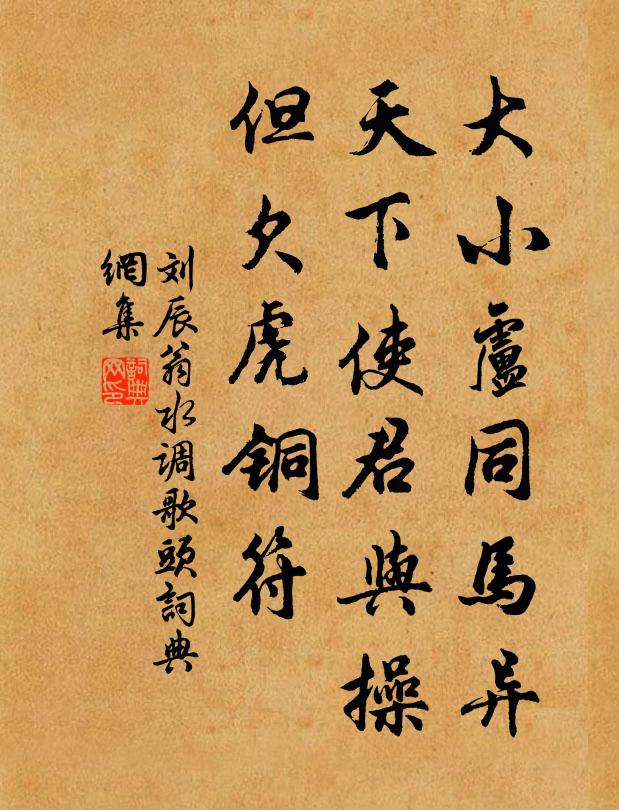 大小盧同馬异
天下使君與操
但欠虎銅符
刘辰翁水调歌頭詞典
網集
詞典
网印